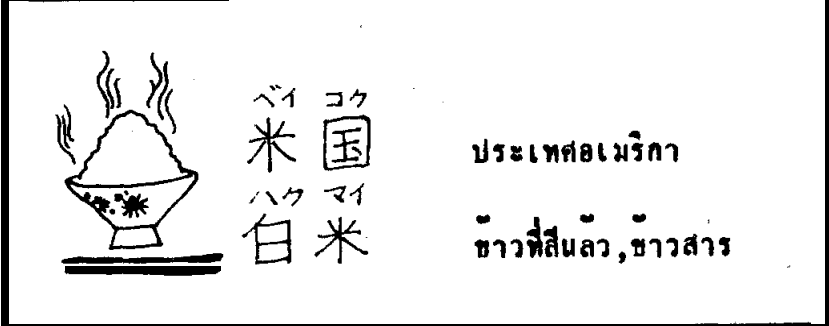 ベイ コク
米 国 ประเทศอเมริกา
ハク マイ
白 米 ข้าวที่สีแล้ว,ข้าวสาร